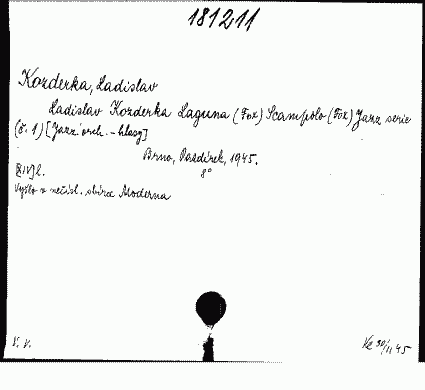 181211
Kozderka, Ladislav
Ladislav Kozderka Laguna (Fox) Scampolo (Fox) Jazz serie
(č. 1) [Jazz. orch. - hlasy]
Brno, Pazdírek, 1945.
8°
Vyšlo v nečísl. sbírce Moderna
V. V.
30/11 45